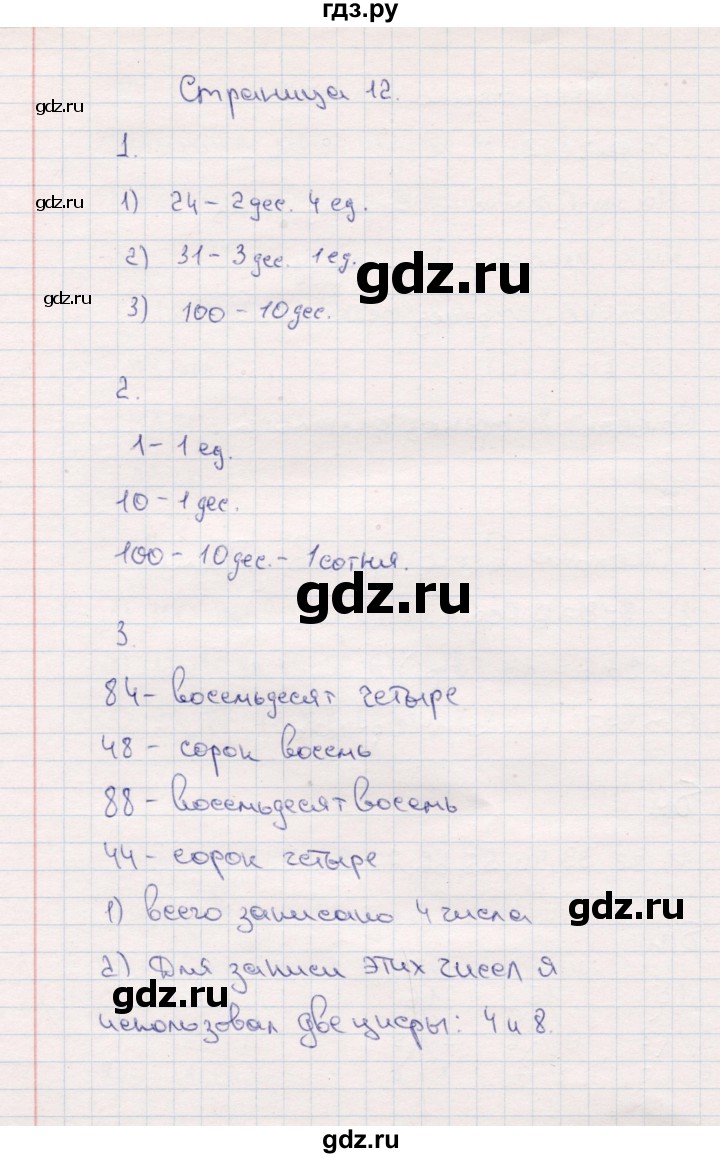 гдз.ру
Страница 12.
gdz.ru
1.
gdz.ru
1) 24 - 2 дес. 4 ед.
2) 31 - 3 дес. 1 ед.
gdz.ru
gdz.ru
3) 100 - 10 дес.
2.
1 - 1 ед.
10 - 1 дес.
100 - 10 дес. - 1 сотня.
gdz.ru
3.
84 - восемьдесят четыре
48 - сорок восемь
88 - восемьдесят восемь
44 - сорок четыре
1) всего записано 4 числа
gdz.ru
2) Для записи этих чисел я
gdz.ru
использовал две цифры: 4 и 8.
gdz.ru